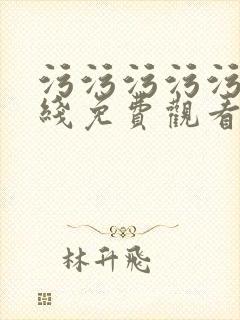 污污污污污
綫免費觀看
林升飛